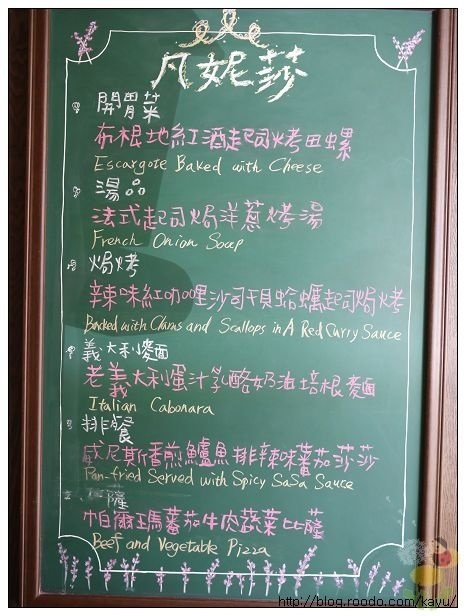 凡妮莎
開胃菜
布根地紅酒起司烤田螺
Escargote Baked with Cheese
湯品
法式起司焗洋蔥烤湯
French Onion Soup
焗烤
辣味紅咖哩沙司干貝蛤蠣起司焗烤
Baked with Clams and Scallops in A Red Curry Sauce
義大利麵
老義大利蛋汁乳酪奶油培根麵
Italian Cabonara
排餐
威尼斯香煎鱸魚排辣味蕃茄莎莎
Pan-fried Served with Spicy SaSa Sauce
薩
帕爾瑪蕃茄牛肉蔬菜比薩
Beef and Vegetable Pizza
http://blog.roodo.com/kayu/